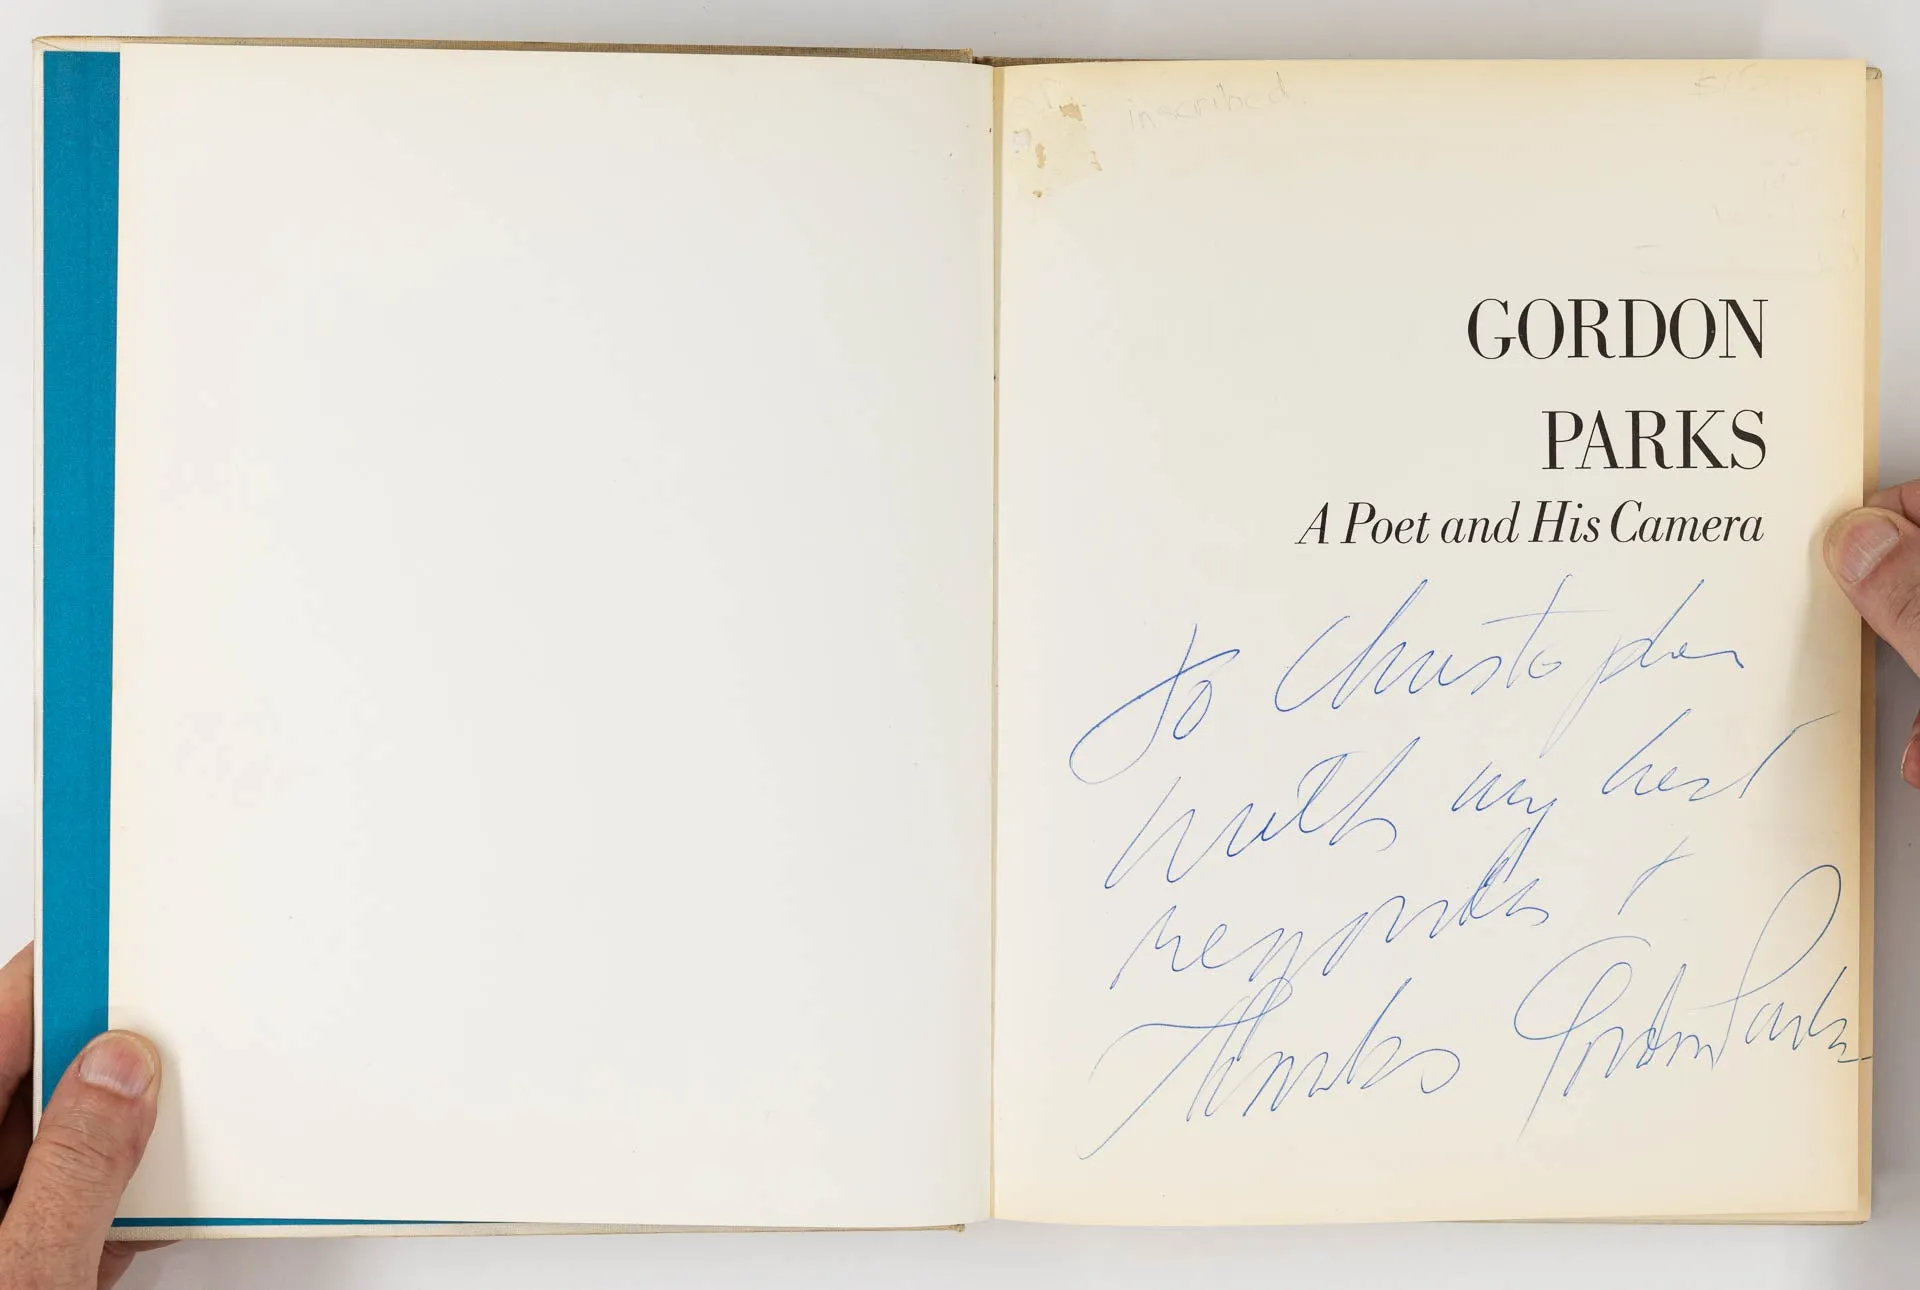 inscribed
GORDON
PARKS
A Poet and His Camera
To Christopher
with my best
regards +
Thanks Gordon Parks